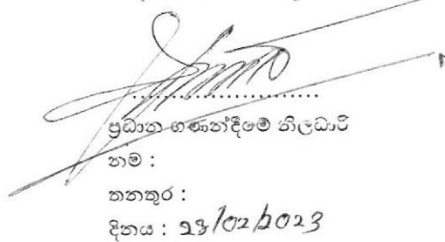 ප්‍රධාන ගණන්දීමේ නිලධාරි
නම :
තනතුර :
දිනය : 28/02/2023